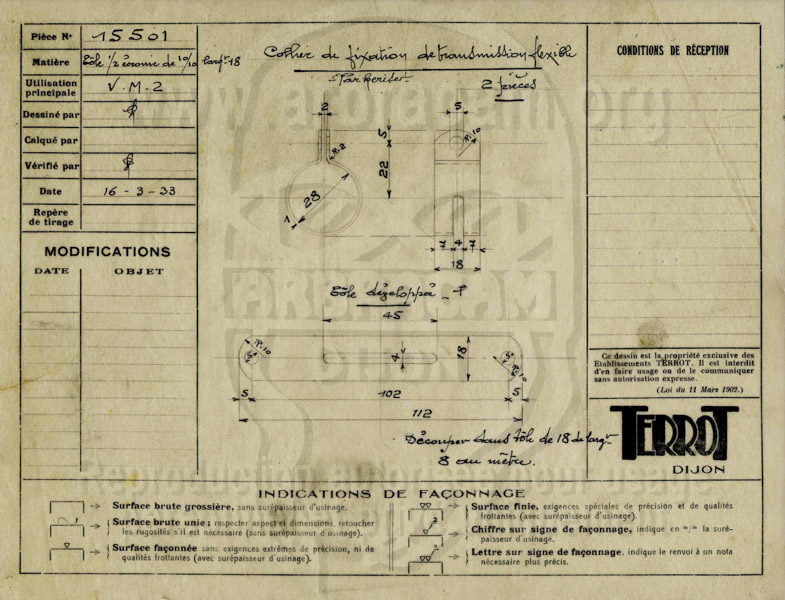 Pièce N° 15501
Matière Tôle 1/2 écrouie de 10/10 largr 18
Utilisation principale V.M.2
Dessiné par
Calqué par
Vérifié par
Date 16 - 3 - 33
Repère de tirage
MODIFICATIONS
DATE OBJET
Collier de fixation de transmission flexible
Parkeriser
2 pièces
2
R.2
28
1
5
22
5
R.10
7 4 7
18
Tôle développée
45
R.10
5
4
18
5
R.10
5
102
5
112
Découper dans tôle de 18 de largr
8 au mètre.
CONDITIONS DE RÉCEPTION
Ce dessin est la propriété exclusive des
Etablissements TERROT. Il est interdit
d'en faire usage ou de le communiquer
sans autorisation expresse.
(Loi du 11 Mars 1902.)
TERROT
DIJON
INDICATIONS DE FAÇONNAGE
Surface brute grossière, sans surépaisseur d'usinage.
Surface brute unie ; respecter aspect et dimensions, retoucher
les rugosités s'il est nécessaire (sans surépaisseur d'usinage).
Surface façonnée sans exigences extrêmes de précision, ni de
qualités frottantes (avec surépaisseur d'usinage).
Surface finie, exigences spéciales de précision et de qualités
frottantes (avec surépaisseur d'usinage).
Chiffre sur signe de façonnage, indique en "/" la suré-
paisseur d'usinage.
Lettre sur signe de façonnage, indique le renvoi à un nota
nécessaire plus précis.